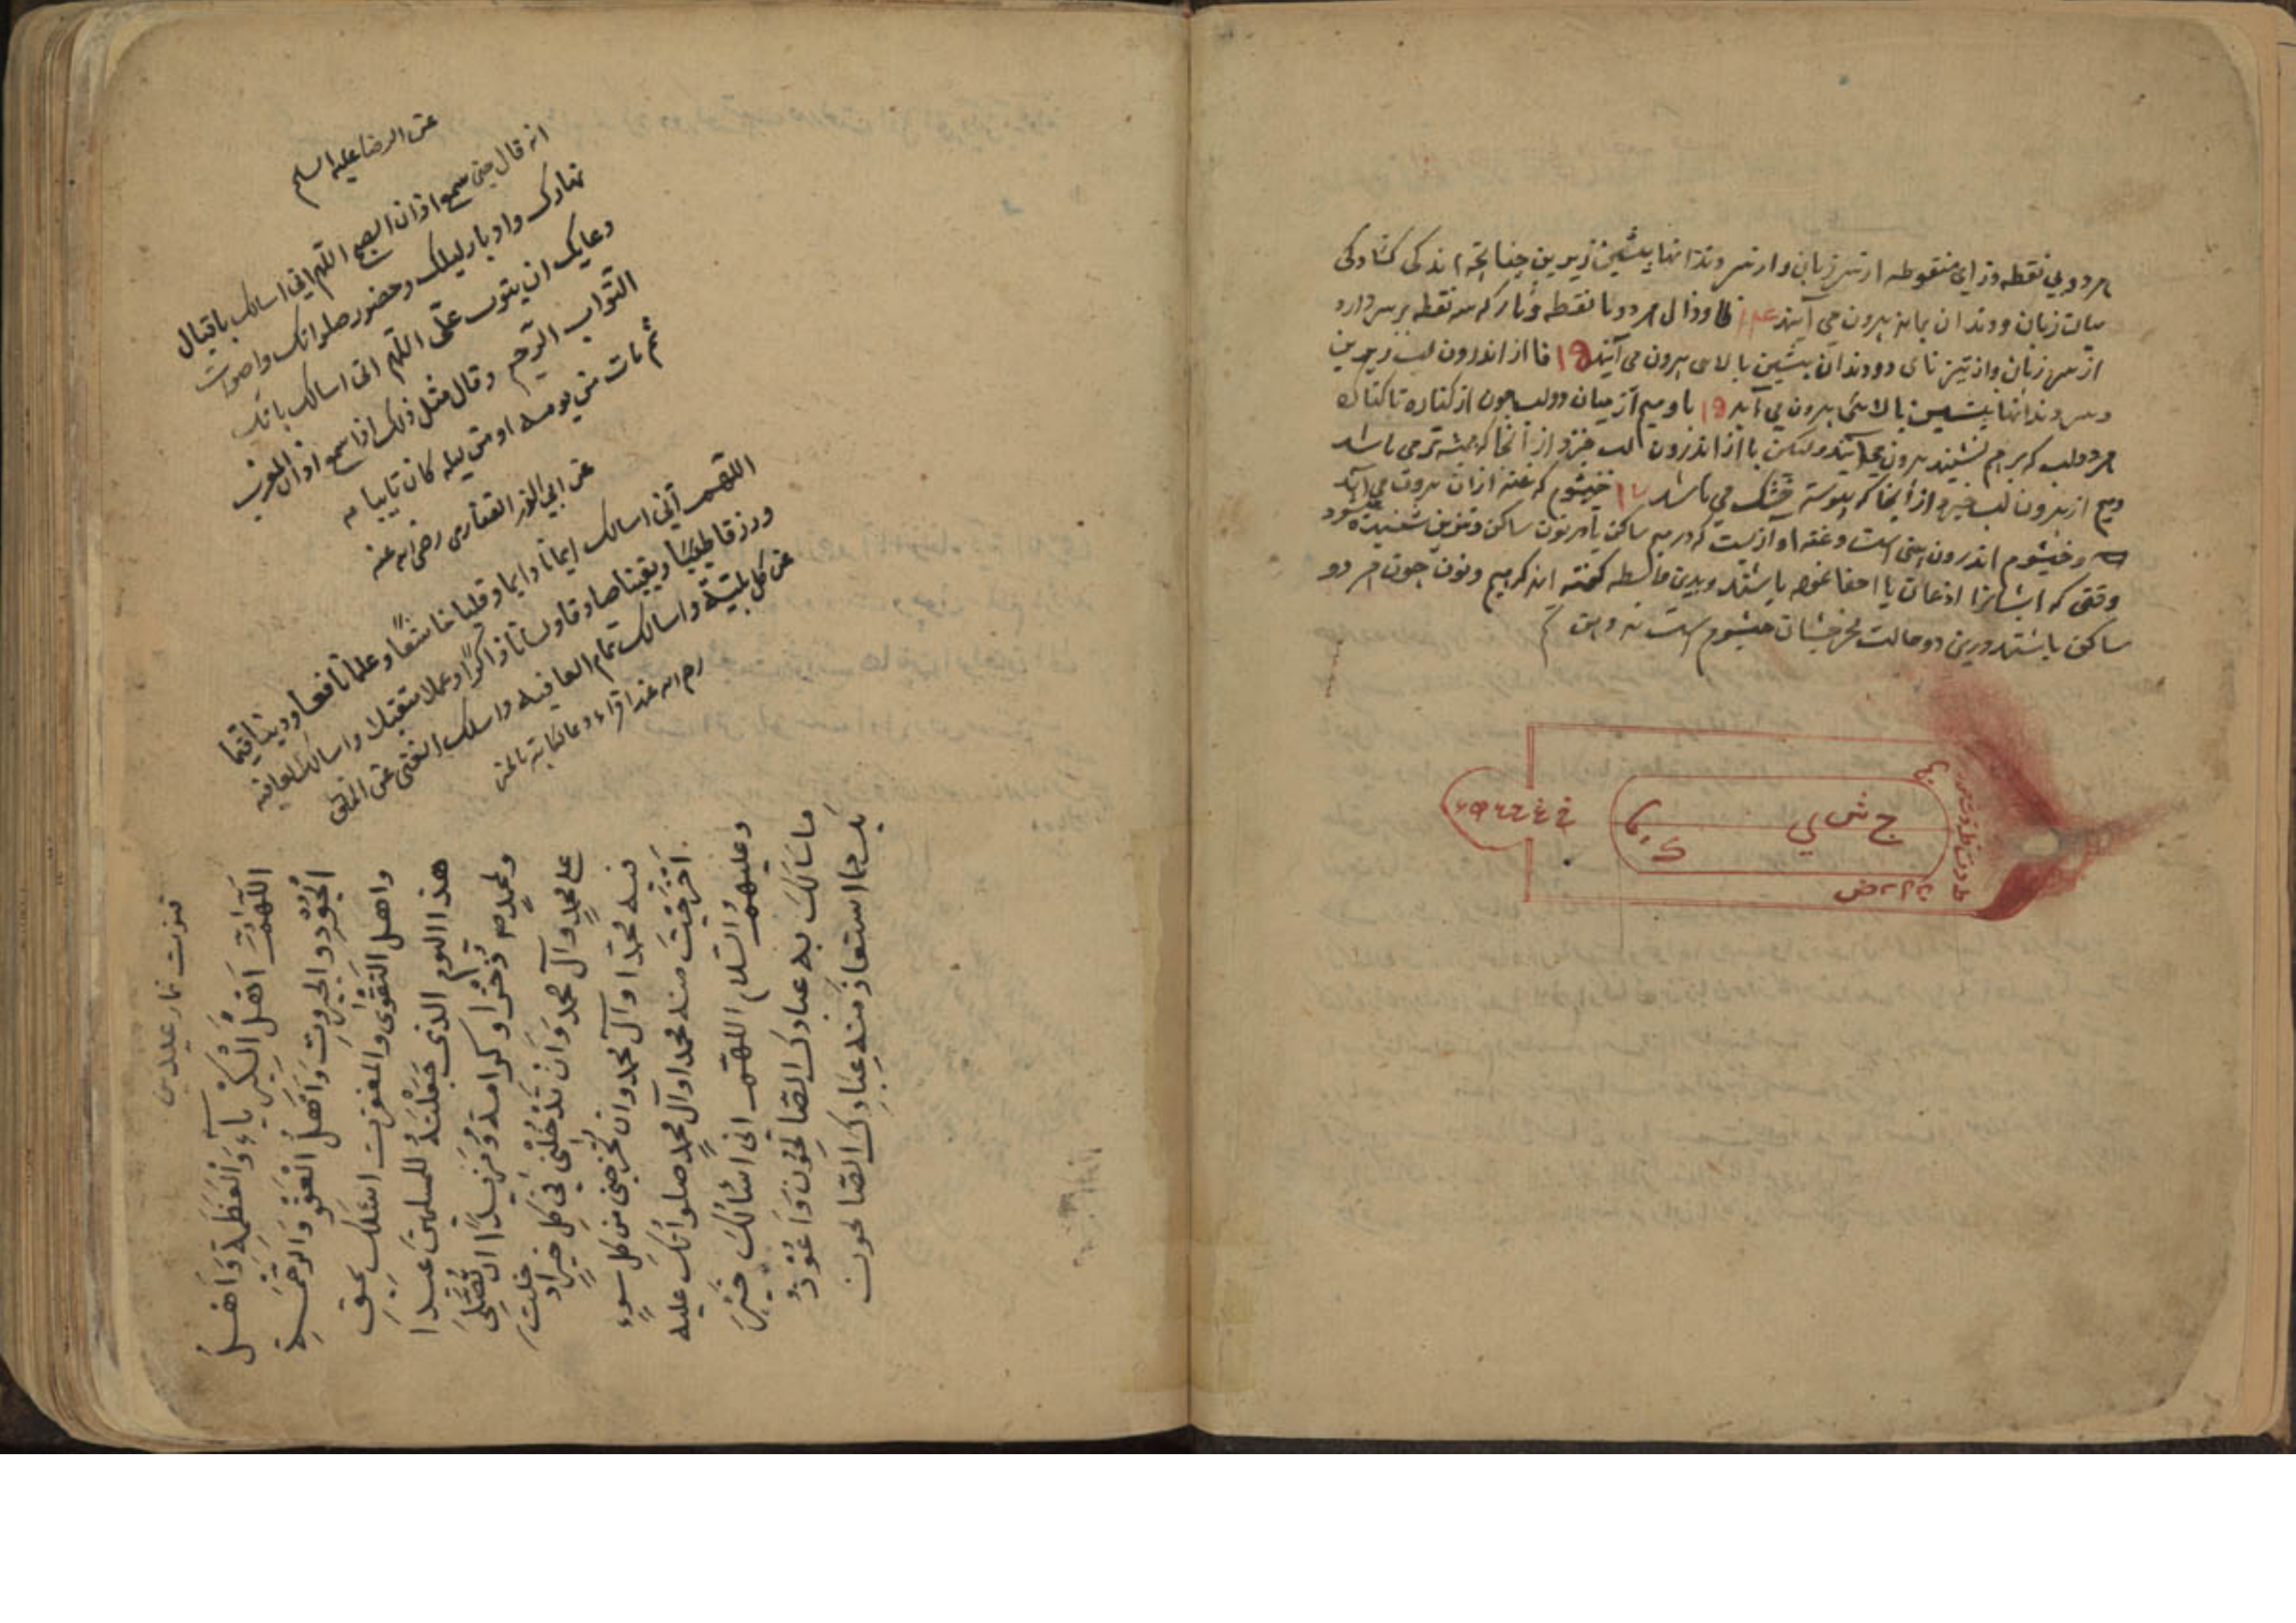 هر دو بی نقطه وزای منقوطه از سر زبان و از سر دندانها پیشین زیرین چنانچه اندکی کشادکی
میان زبان و دندان بماند بیرون می آیند ظا و ذال هر دو با نقطه و ثا که سه نقطه بر سر دارد
از سر زبان و از تیز نای دو دندان پیشین بالای بیرون می آیند ۱۵ فا از اندرون لب زیرین
و سر دندانها پیشین بالائی بیرون می آید ۱۶ با و میم از میان دو لب چون از کناره تا کناره
هر دو لب که برهم نشیند بیرون می آیند ولیکن با از اندرون لب خیزد از آنجا که همیشه تر می باشد
و میم از بیرون لب خیزد از آنجا که پیوسته خشک می باشد ۱۷ خیشوم که غنه ازان بیرون می آید
و خیشوم اندرون بینی است و غنه آوازیست که در میم ساکن یا در نون ساکن و تنوین شنیده شود
وقتی که ایشانرا ادغام یا اخفا باشد و بدین واسطه گفته اند که میم و نون چون هر دو
ساکن باشند درین دو حالت مخرجشان خیشوم است
ج ش ي
ك
ض
عن الرضا علیه السلم
انه قال حین سمع اذان الصبح اللهم انی اسالک باقبال
نهارک وادبار لیلک وحضور صلواتک واصوات
دعایک ان یتوب علی اللهم انی اسالک بانک
التواب الرحیم وقال مثل ذلک اذا سمع اذان المغرب
ثم مات من یومه او من لیله کان تایبا
عن ابی الذر الغفاری رضی الله عنه
اللهم انی اسالک ایمانا دایما وقلبا خاشعا وعلما نافعا ودینا قیما
ورزقا طیبا ویقینا صادقا ولسانا ذاکرا وعملا متقبلا واسالک العافیه
من کل بلیة واسالک تمام العافیه واسالک الغنی عن الناس
قنوت نماز عیدین
اَللّهُمَّ اَنْتَ اَهْلُ الْكِبْرِیآءِ وَالْعَظَمَةِ وَاَهْلَ
الْجُودِ وَالْجَبَروتِ وَاَهْلَ الْعَفْوِ وَالرَّحْمَةِ
واهل التَقْوى والمغفرت اسئلك بحق
هذا الیوم الذی جَعَلْتَهُ للمسلمین عیدا
ولمحمد ذُخْرا وكرامة وَمَزیدًا ان تُصَلِّی
علی محمد وآل محمد وَاَن تُدْخِلْنی فی كل خیر ادخلت
فیه محمدا وآل محمد وان تُخرجنی من كل سوء
اَخْرَجْتَ منه محمدا وآل محمد صلواتك علیه
وعلیهم والسلام اللهم انی اَسْاَلُكَ خَیْرَ
ما سَاَلَكَ به عبادك الصالِحُون وَاَعُوْذُ
بك مما استعاذ منه عِبادِك الصالحون